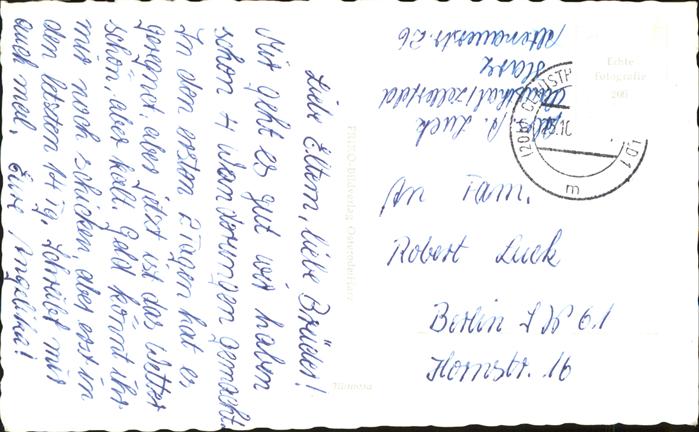 Liebe Eltern, liebe Brüder!
Mir geht es gut wir haben
schon 4 Wanderungen gemacht.
In den ersten Tagen hat es
geregnet, aber jetzt ist das Wetter
schön, aber kalt. Geld könnt ihr
mir noch schicken, aber erst in
den letzten 14 Tg. Schreibt mir
auch mal, Eure Angelika!
A. Luck
Clausthal/Zellerfeld
Harz
Altenauerstr. 26
Echte
Fotografie
An Fam.
Robert Luck
Berlin SW 61
Hornstr. 16
PHOTO-Bildverlag, Osterode/Harz
Mimosa
(20b) CLAUSTH
m